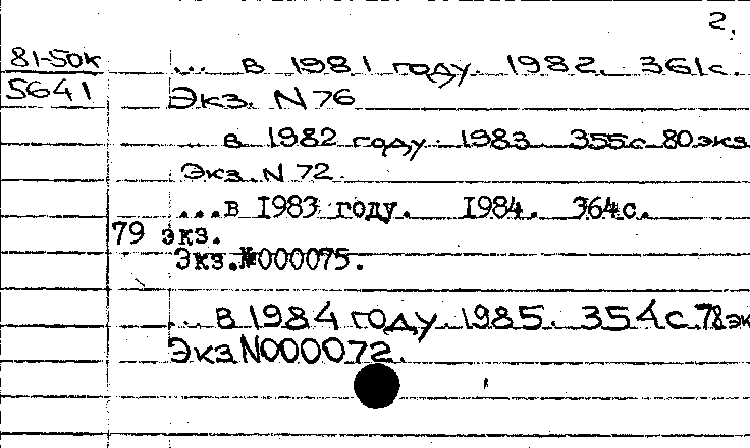 2.
81-50к
5641
... в 1981 году. 1982. 361с.
Экз. N 76
... в 1982 году. 1983 355с 80экз
Экз. N 72.
...в 1983 году. 1984. 364с.
79 экз.
Экз.№000075.
... в 1984 году. 1985. 354с. 78эк
Экз N000072.